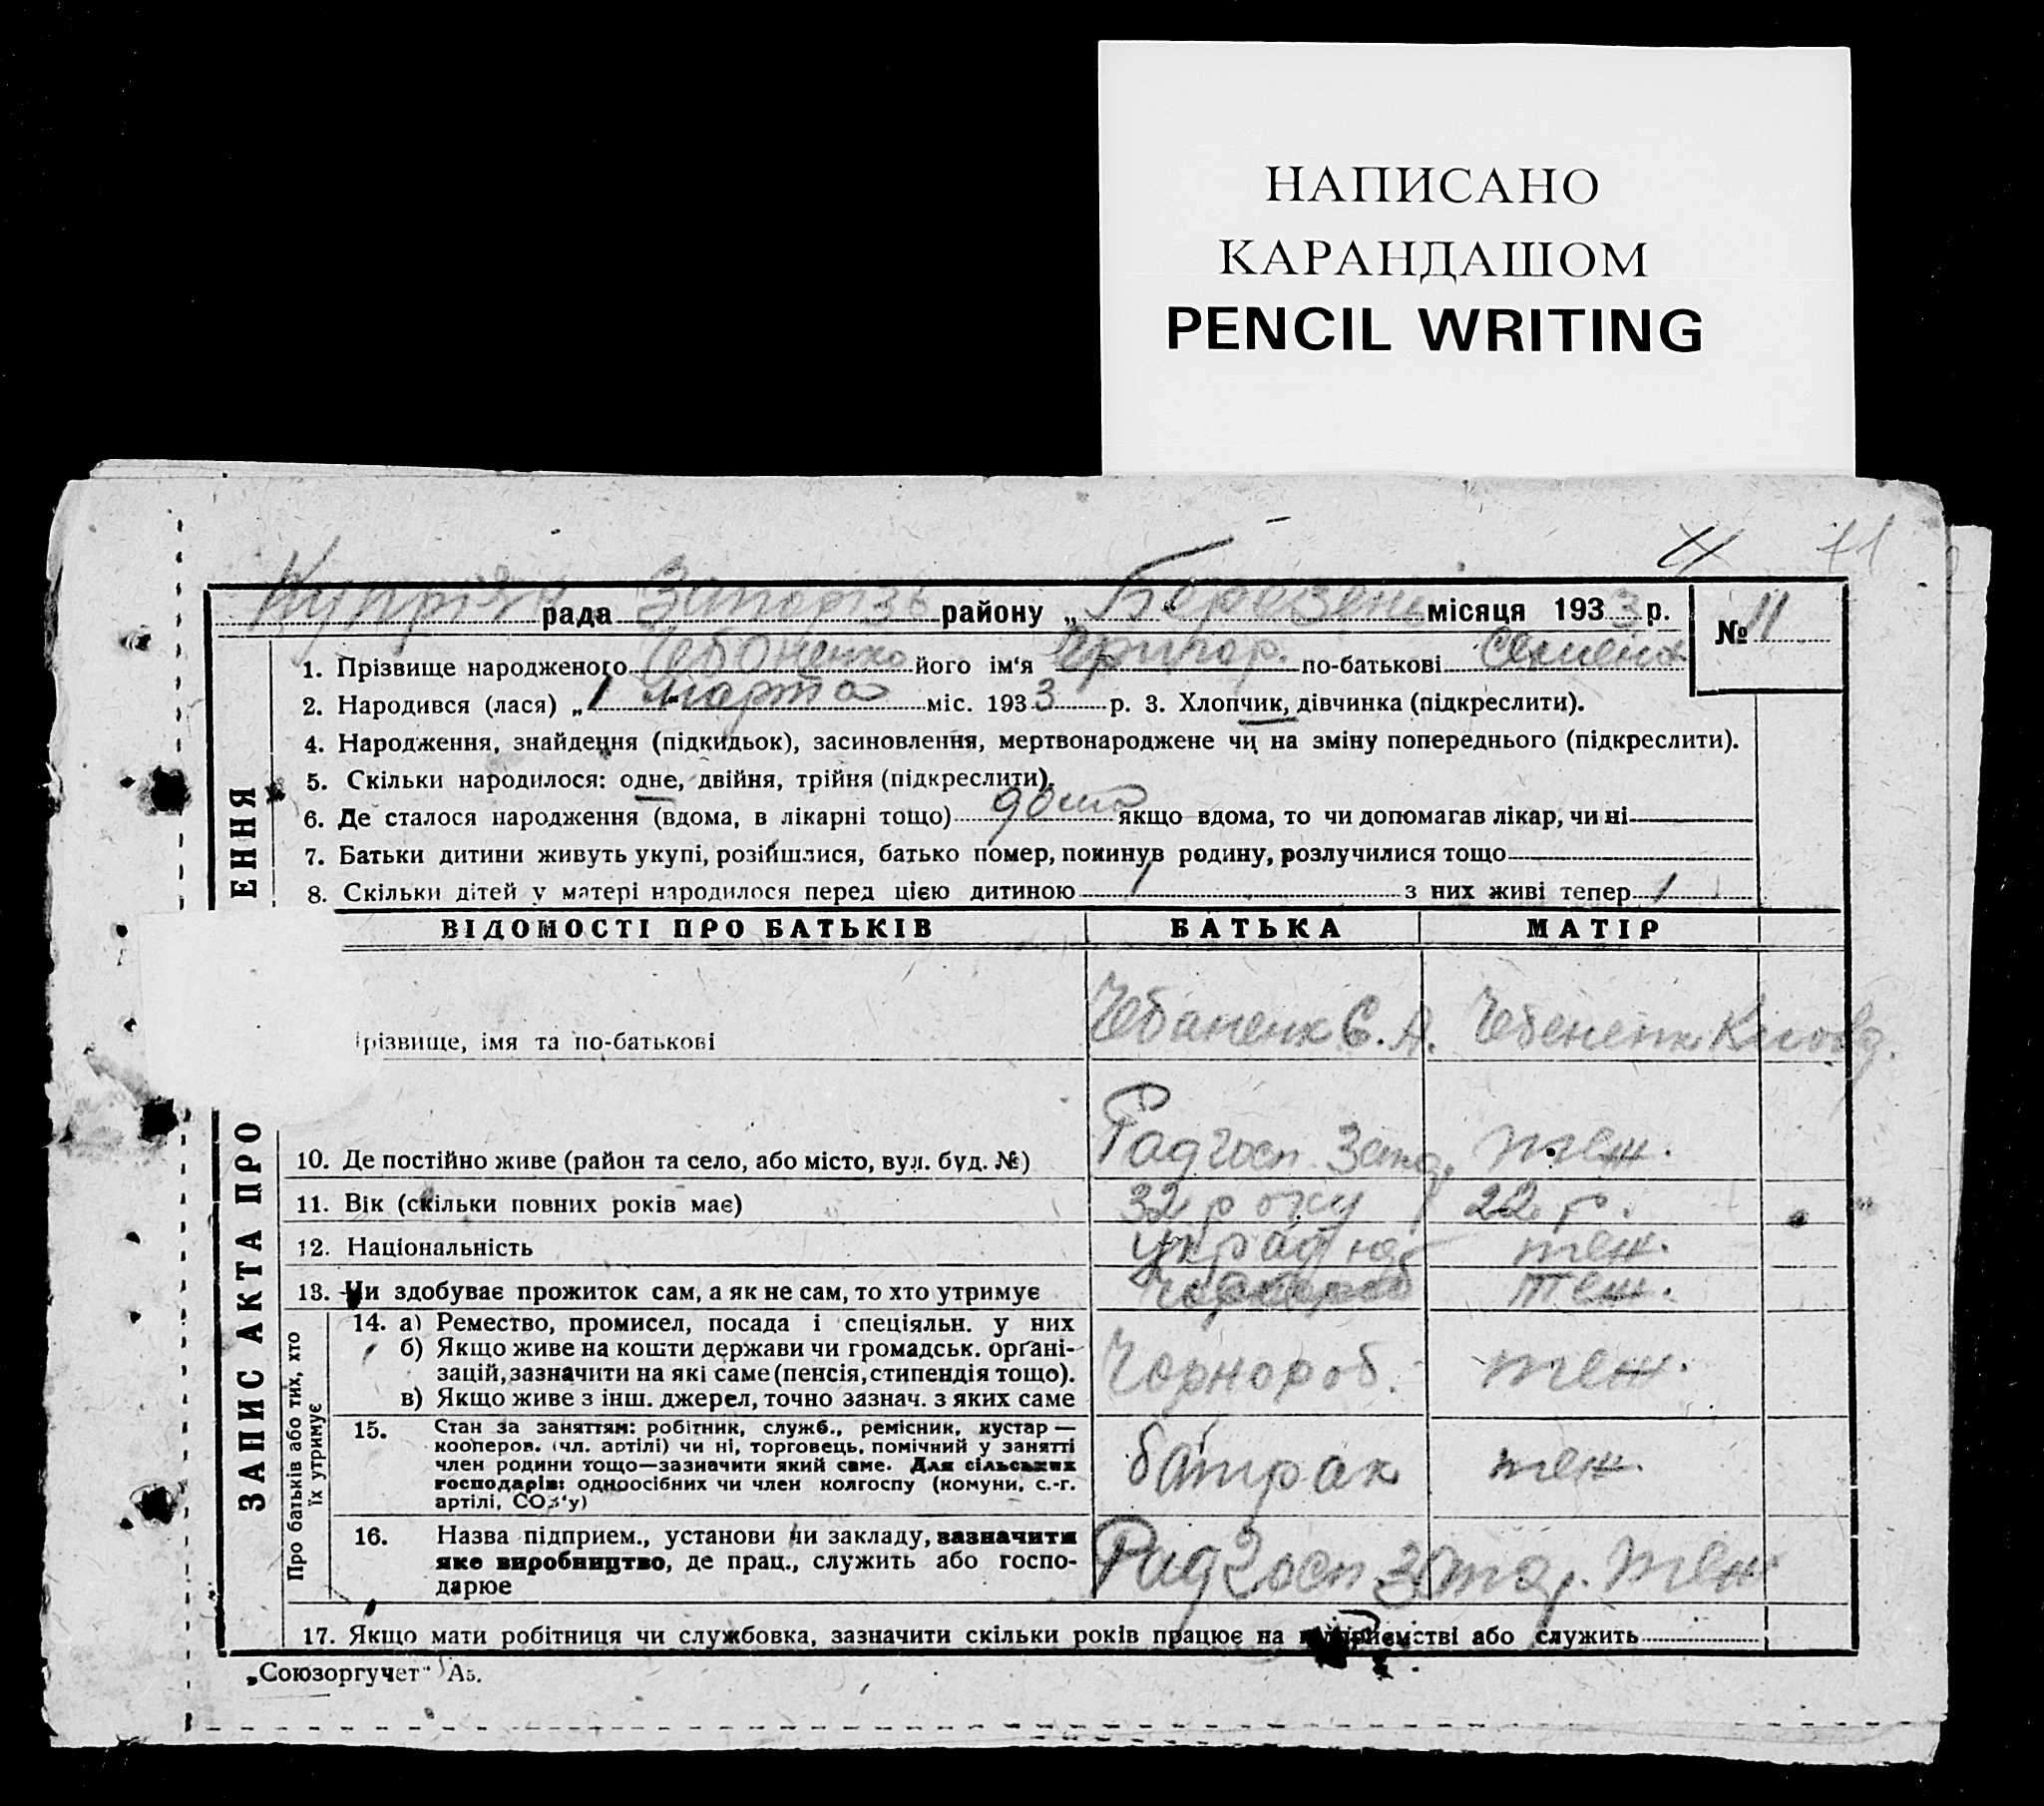 НАПИСАНО
КАРАНДАШОМ
PENCIL WRITING
11
рада Запорізь району „ " Березень місяця 1933 р. № 11
1. Прізвище народженого Чебоненко його ім‘я Григор. по-батькові
2. Народився (лася) „1 марта міс. 1933 р. 3. Хлопчик, дівчинка (підкреслити).
4. Народження, знайдення (підкидьок), засиновлення, мертвонароджене чи на зміну попереднього (підкреслити).
5. Скільки народилося: одне, двійня, трійня (підкреслити).
6. Де сталося народження (вдома, в лікарні тощо) дома якщо вдома, то чи допомагав лікар, чи ні
7. Батьки дитини живуть укупі, розійшлися, батько помер, покинув родину, розлучилися тощо
8. Скільки дітей у матері народилося перед цією дитиною 1 з них живі тепер 1
ЗАПИС АКТА ПРО ЕННЯ
ВІДОМОСТІ ПРО БАТЬКІВ БАТЬКА МАТІР
різвище, імя та по-батькові Чебаненк Є. А.
10. Де постійно живе (район та село, або місто, вул. буд. №) Радгосп теж.
11. Вік (скільки повних років має) 32 року 22 р.
12. Національність теж.
13. Чи здобуває прожиток сам, а як не сам, то хто утримує теж.
Про батьків або тих, хто їх утримує
14. а) Ремество, промисел, посада і спеціяльн. у них
б) Якщо живе на кошти держави чи громадськ. органі-
зацій, зазначити на які саме (пенсія, стипендія тощо). Чорнороб. теж.
в) Якщо живе з інш. джерел, точно зазнач. з яких саме
15. Стан за заняттям: робітник, служб., ремісник, кустар —
кооперов. (чл. артілі) чи ні, торговець, помічний у занятті
член родини тощо—зазначити який саме. Для сільських батрак теж.
господарів: одноосібних чи член колгоспу (комуни, с.-г.
артілі, СОЗ‘у)
16. Назва підприєм., установи чи закладу, зазначити
яке виробництво, де прац., служить або госпо- Радгосп теж
дарює
17. Якщо мати робітниця чи службовка, зазначити скільки років працює на підприємстві або служить
„Союзоргучет" А5.